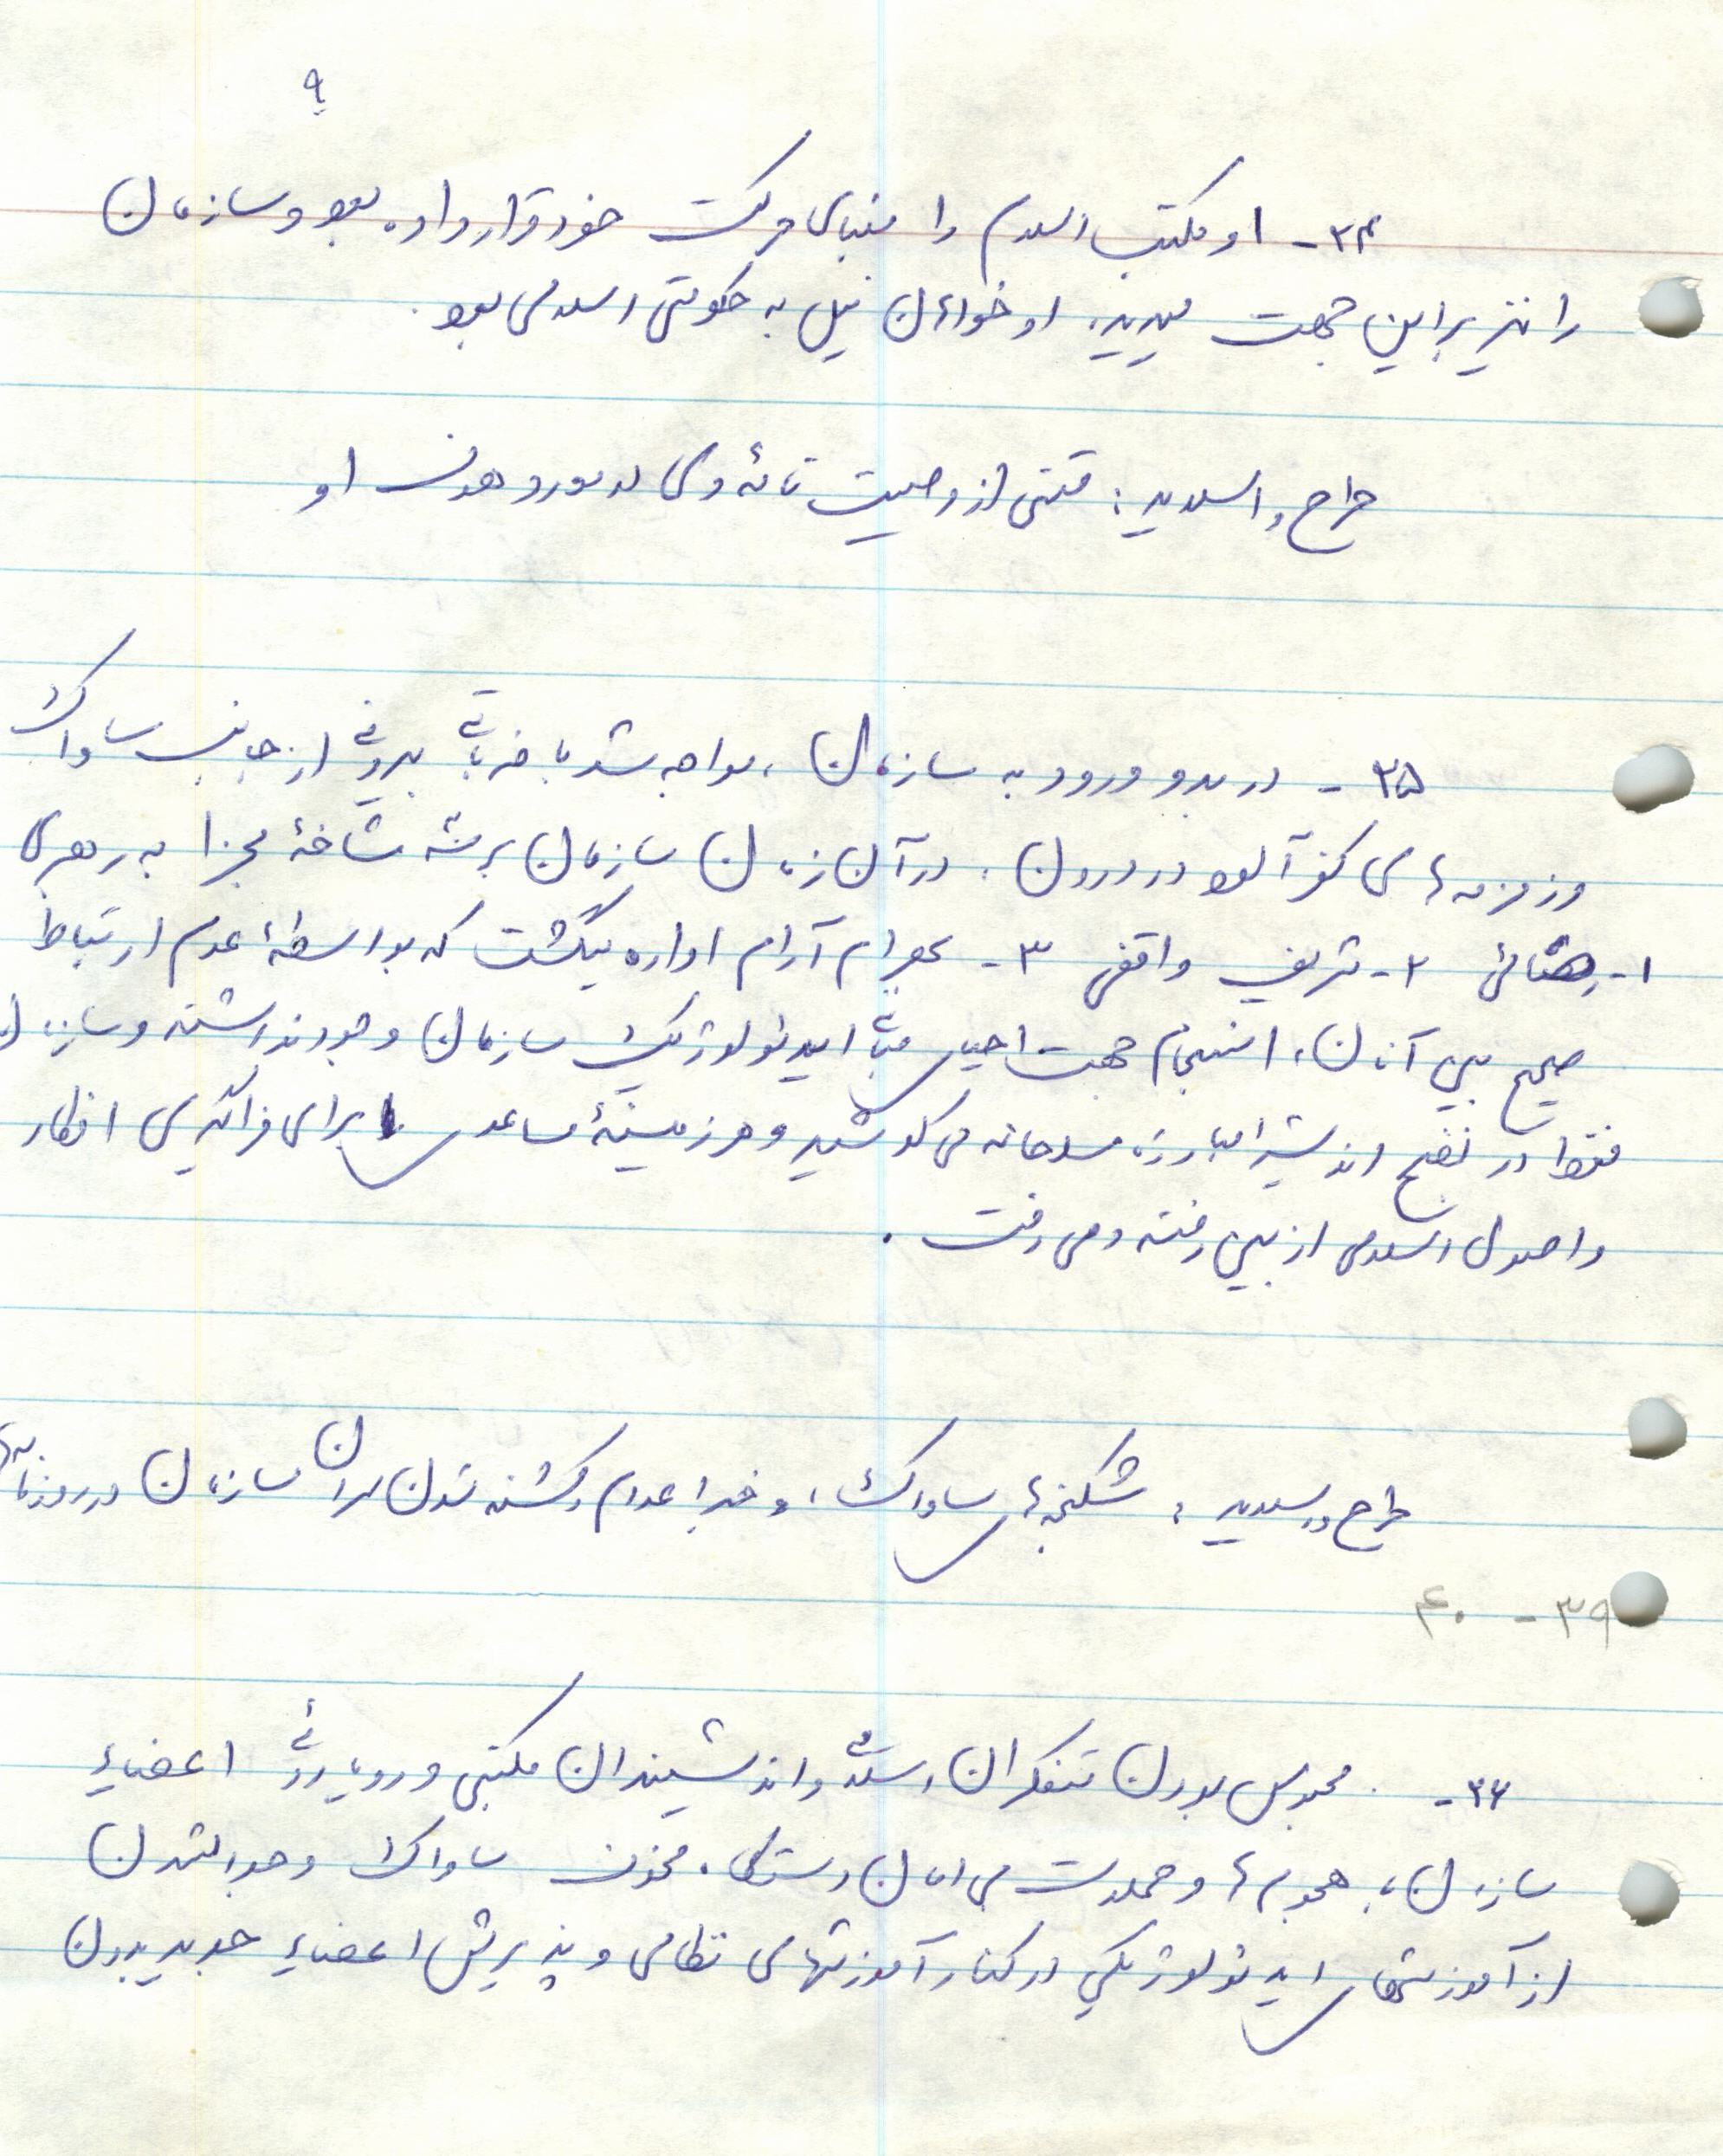 ۹
۳۴- او مکتب اسلام را مبنای حرکت خود قرار داده بود و سازمان
را نیز بر این جهت میدید، او خواهان نیل به حکومتی اسلامی بود.
طرح و اسلاید: متنی از وصیت نامهٔ وی در مورد هدف او
۳۵- در بدو ورود به سازمان، مواجه شد با ضرباتی بیرونی از جانب ساواک
و زمزمه‌های کفرآلود در درون. در آن زمان سازمان بر سه شاخهٔ مجزا به رهبری
۱- ۲- شریف واقفی ۳- بهرام آرام اداره میگشت که بواسطهٔ عدم ارتباط
صحیح بین آنان، انسجام جهت احیای مبانی ایدئولوژیک سازمان وجود نداشته و سازمان
فقط در نضج اندیشهٔ مبارزه مسلحانه می کوشید و هر زمینهٔ مساعدی برای فراگیری افکار
و اصول اسلامی از بین رفته و می رفت.
طرح و اسلاید: شکنجه‌های ساواک، و خبر اعدام و کشته شدن سران سازمان در روزنامه‌ها
۳۹ - ۴۰
۳۶- محبوس بودن متفکران اسلامی و اندیشمندان مکتبی و رویارویی اعضاء
سازمان، با هجوم‌ها و حملات بی امان دستگاه مخوف ساواک و جدا شدن
از آموزشهای ایدئولوژیکی در کنار آموزشهای نظامی و پذیرش اعضاء جدید بدون